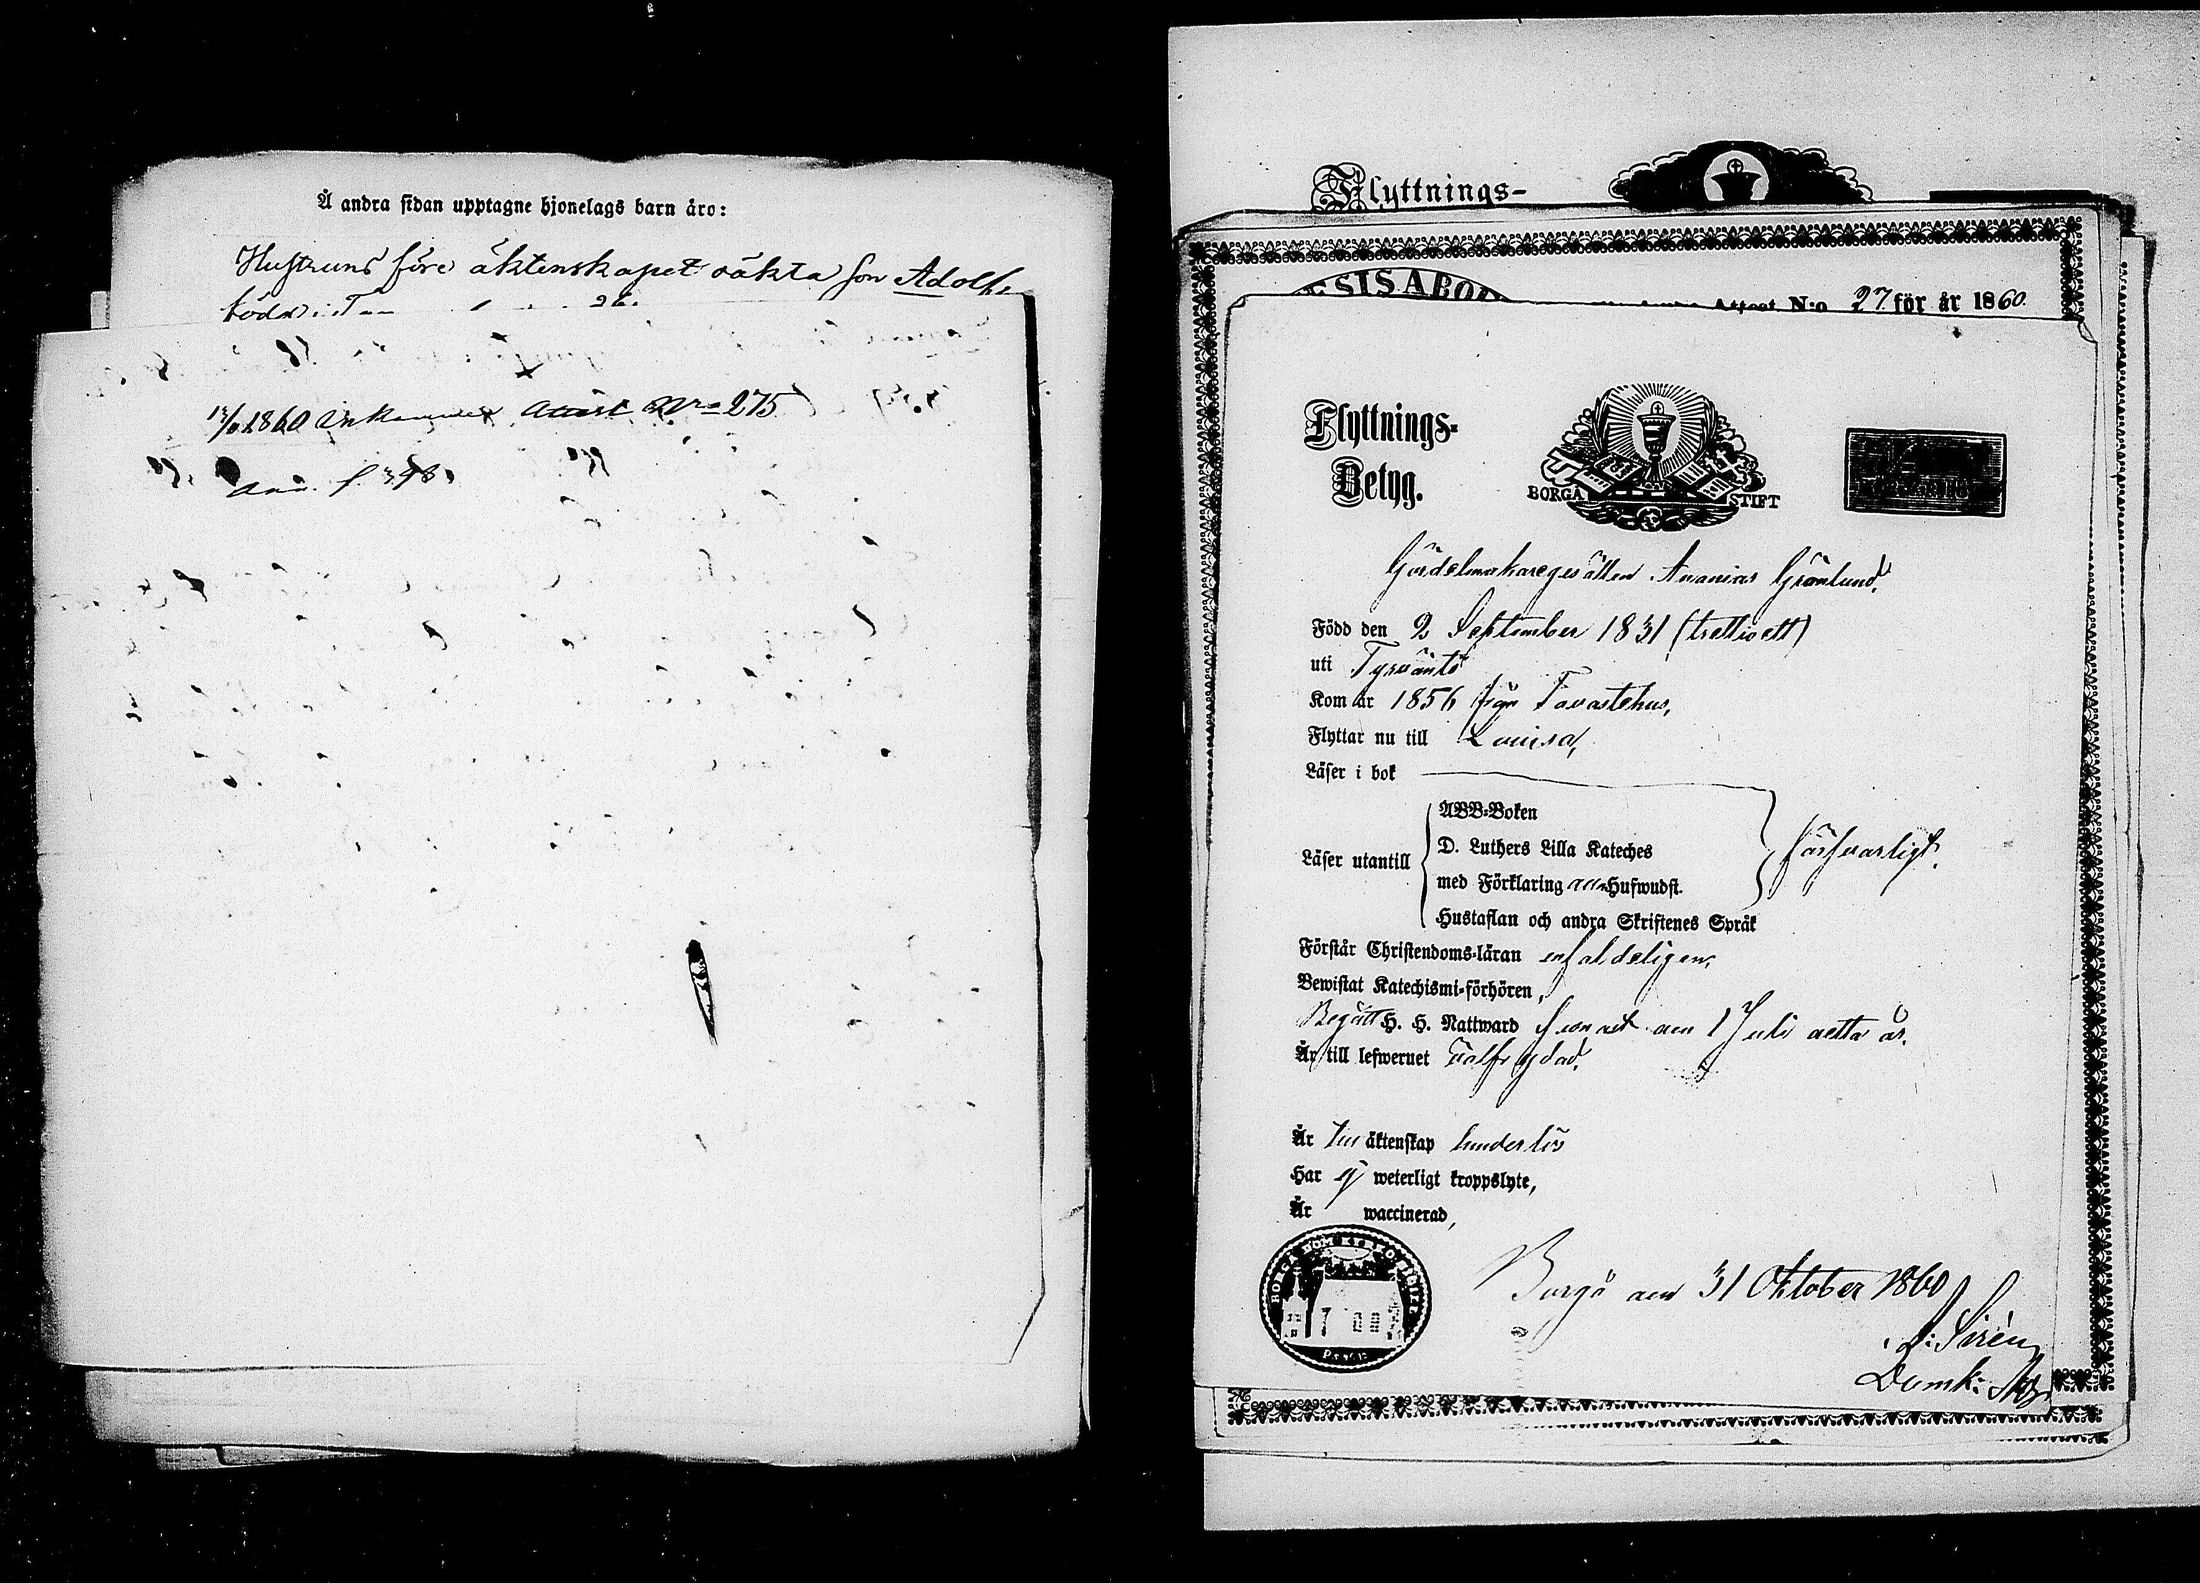 Å andra sidan upptagne hjonelags barn äro:
Hustruns före äktenskapet oäkta son Adolf,
född i 26.
1860 Ankommen Attest Nro 275
Flyttnings-
SIS ABO
Attest N:o 27 för år 1860.
Flyttnings-
Betyg.
BORGÅ STIFT
Gördelmakaregesällen Ananias Grönlund.
Född den 2 September 1831 (trettioett)
uti Tyrväntö
Kom år 1856 från Tavastehus,
Flyttar nu till Lovisa,
Läser i bok
ABB-Boken
D. Luthers Lilla Kateches
Läser utantill försvarligt.
med Förklaring Hufwudst.
Hustaflan och andra Skriftenes Språk
Förstår Christendoms-läran enfaldeligen,
Bewistat Katechismi-förhören,
Begått H. H. Nattward senast den 1 Juli detta år.
Är till lefwernet välfrejdad.
Är till äktenskap hinderlös
Har ej weterligt kroppslyte,
Är waccinerad,
Borgå den 31 Oktober 1860
Sirén
Domk: